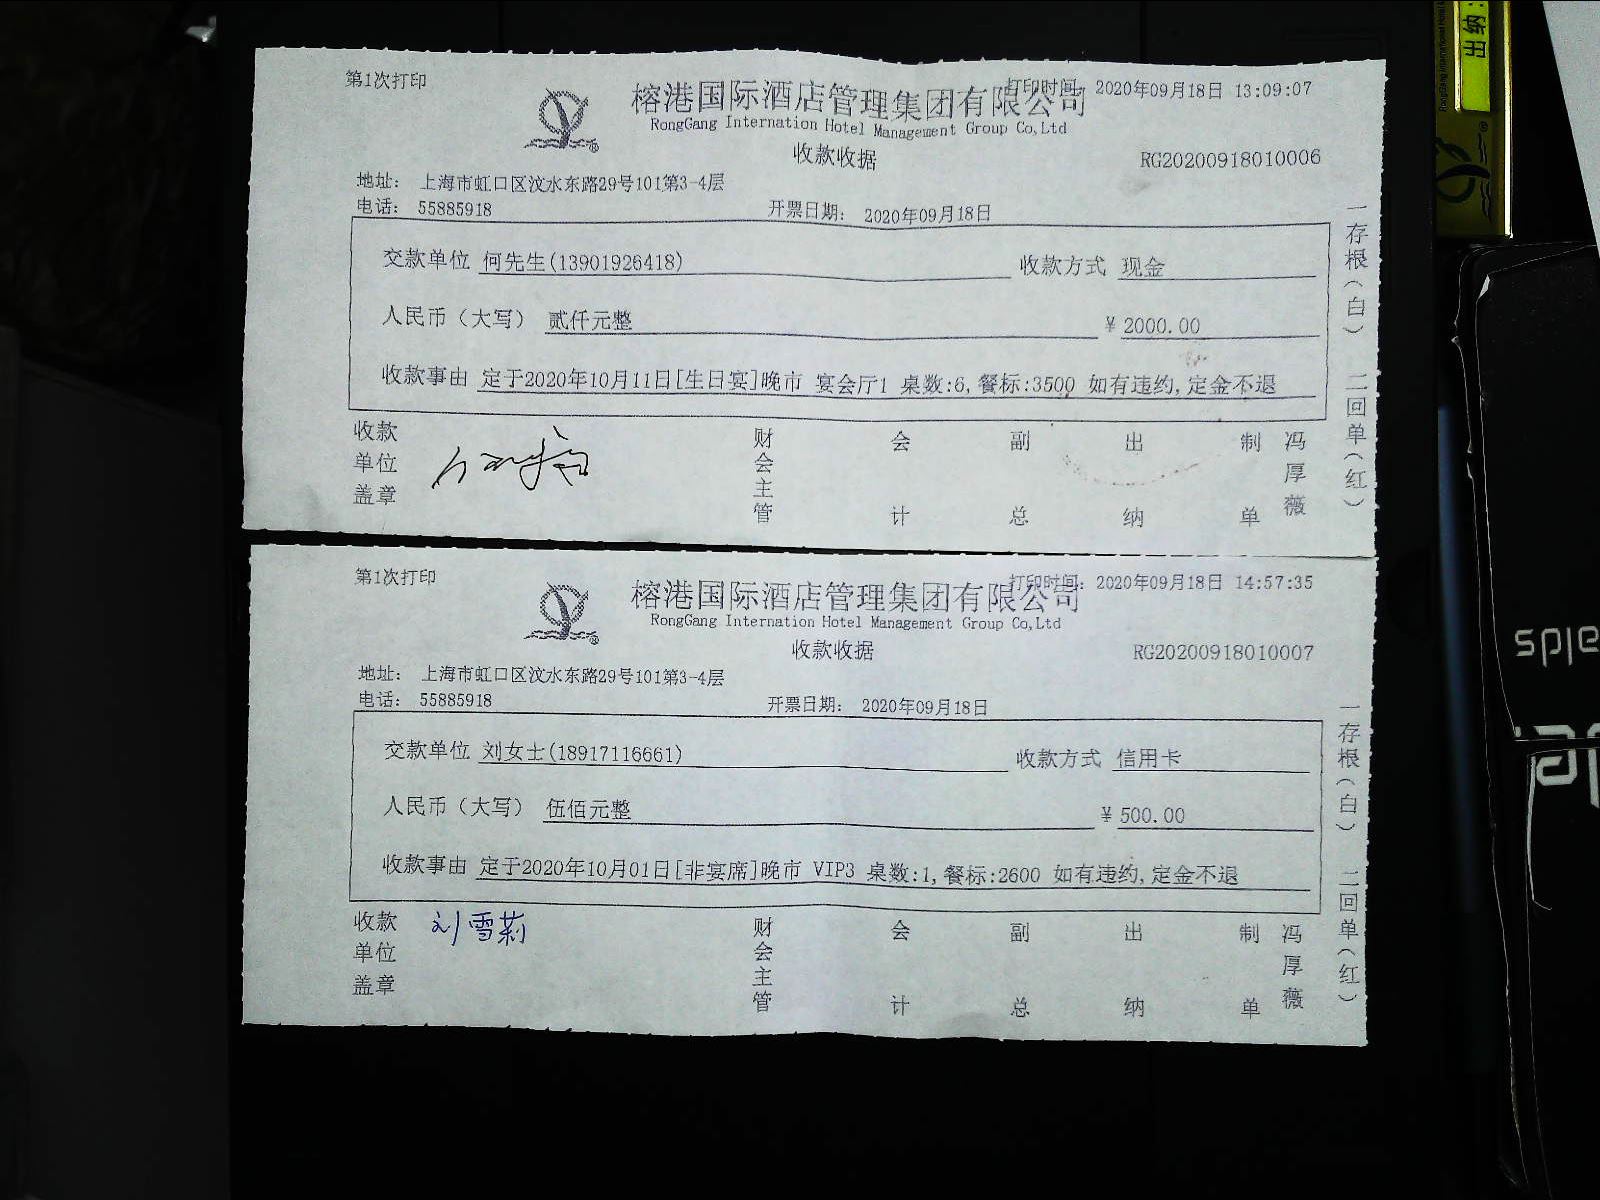 第1次打印
打印时间: 2020年09月18日 13:09:07
榕港国际酒店管理集团有限公司
RongGang Internation Hotel Management Group Co,Ltd
收款收据
RG20200918010006
地址: 上海市虹口区汶水东路29号101第3-4层
电话: 55885918
开票日期: 2020年09月18日
交款单位 何先生(13901926418) 收款方式 现金
人民币（大写） 贰仟元整 ¥ 2000.00
收款事由 定于2020年10月11日[生日宴]晚市 宴会厅1 桌数:6,餐标:3500 如有违约,定金不退
收款单位盖章
财会主管
会计
副总
出纳
制单
冯厚薇
一存根(白) 二回单(红)
第1次打印
打印时间: 2020年09月18日 14:57:35
榕港国际酒店管理集团有限公司
RongGang Internation Hotel Management Group Co,Ltd
收款收据
RG20200918010007
地址: 上海市虹口区汶水东路29号101第3-4层
电话: 55885918
开票日期: 2020年09月18日
交款单位 刘女士(18917116661) 收款方式 信用卡
人民币（大写） 伍佰元整 ¥ 500.00
收款事由 定于2020年10月01日[非宴席]晚市 VIP3 桌数:1,餐标:2600 如有违约,定金不退
收款单位盖章
刘雪莉
财会主管
会计
副总
出纳
制单
冯厚薇
一存根(白) 二回单(红)
出纳: